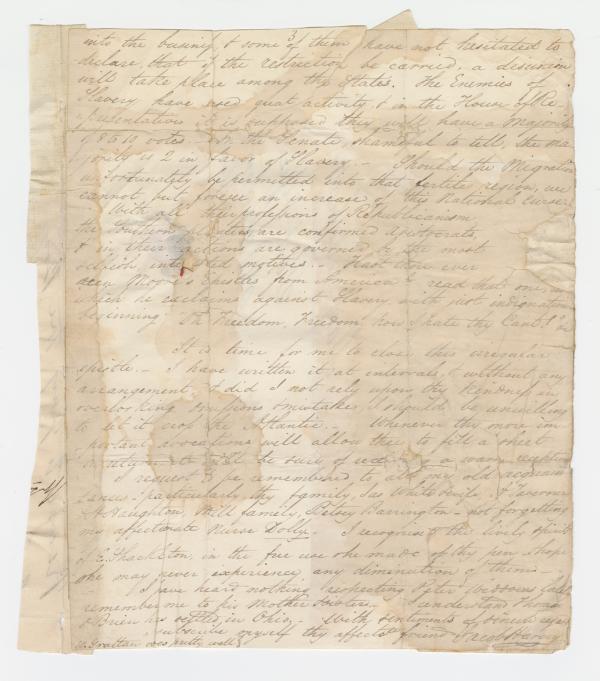 3
into the business, & some of them have not hesitated to
declare, that if the restriction be carried, a disunion
will take place among the States. The Enemies of
Slavery have used great activity & in the House of Re-
presentatives it is supposed they will have a majority
of 8 to 10 votes - In the Senate, shameful to tell, the ma-
jority is 2 in favor of Slavery. - Should the Migration
unfortunately be permitted into that fertile region, we
cannot but foresee an increase of this National Curse.
With all their professions of Republicanism
the Southern planters are confirmed Aristocrats
& in their actions are governed by the most
selfish interested motives. - Hast thou ever
seen Moore's Epistles from America? read that one, in
which he exclaims against Slavery with just indignation
beginning "Oh Freedom, Freedom how I hate thy Cant!"
It is time for me to close this irregular
epistle. - I have written it at intervals, & without any
arrangement, & did I not rely upon thy kindness in
overlooking omissions & mistakes, I should be unwilling
to let it cross the Atlantic. - Whenever thy more im-
portant avocations will allow thee to fill a sheet
be sure of a warm reception
I request to be remembered to all my old acquain-
tances - particularly thy family, Jas White
A Naughton, Will family, Betsey Barrington - not forgetting
my affectionate Nurse Dolly. I recognised the lively spirit
of E. Shackleton, in the free use she made of thy pen & hope
she may never experience any diminution of them -
I have heard nothing respecting Peter
remember me to his Mother & Sisters. I understand Thomas
O'Brien has settled in Ohio. - With sentiments of
I subscribe myself thy affecte. friend Jacob Harvey
W. Grattan does pretty well